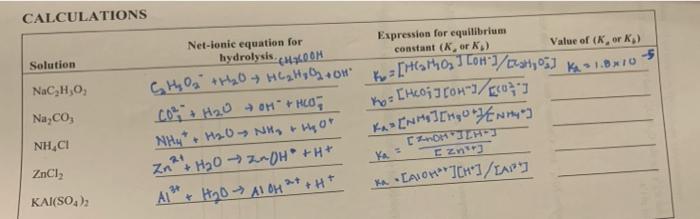 CALCULATIONS
Solution
Net-ionic equation for hydrolysis
Expression for equilibrium constant (Kₐ or K_b)
Value of (Kₐ or K_b)
NaC₂H₃O₂ C₂H₃O₂⁻ + H₂O → HC₂H₃O₂ + OH⁻ K_b = [HC₂H₃O₂][OH⁻]/[C₂H₃O₂⁻] Kₐ = 1.8×10⁻⁵
Na₂CO₃ CO₃²⁻ + H₂O → OH⁻ + HCO₃⁻ K_b = [HCO₃⁻][OH⁻]/[CO₃²⁻]
NH₄Cl NH₄⁺ + H₂O → NH₃ + H₃O⁺ Ka = [NH₃][H₃O⁺]/[NH₄⁺]
ZnCl₂ Zn²⁺ + H₂O → ZnOH⁺ + H⁺ Ka = [ZnOH⁺][H⁺]/[Zn²⁺]
KAl(SO₄)₂ Al³⁺ + H₂O → AlOH²⁺ + H⁺ Ka = [AlOH²⁺][H⁺]/[Al³⁺]